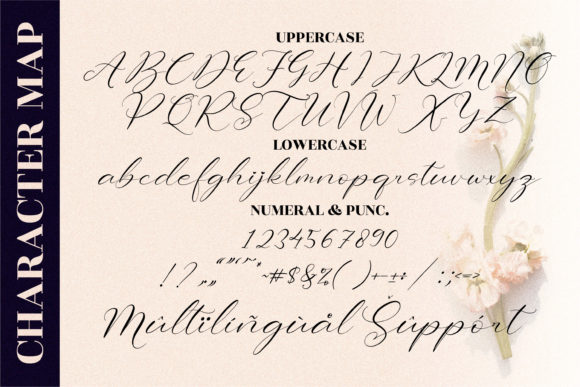 CHARACTER MAP
UPPERCASE
ABCDEFGHIJKLMNO
PQRSTUVWXYZ
LOWERCASE
abcdefghijklmnopqrstuvwxyz
NUMERAL & PUNC.
1234567890
!?,,„“”“‘’*~#$&%()+-±÷/:;<=>
Mûltïlíñgùål Šûppórt